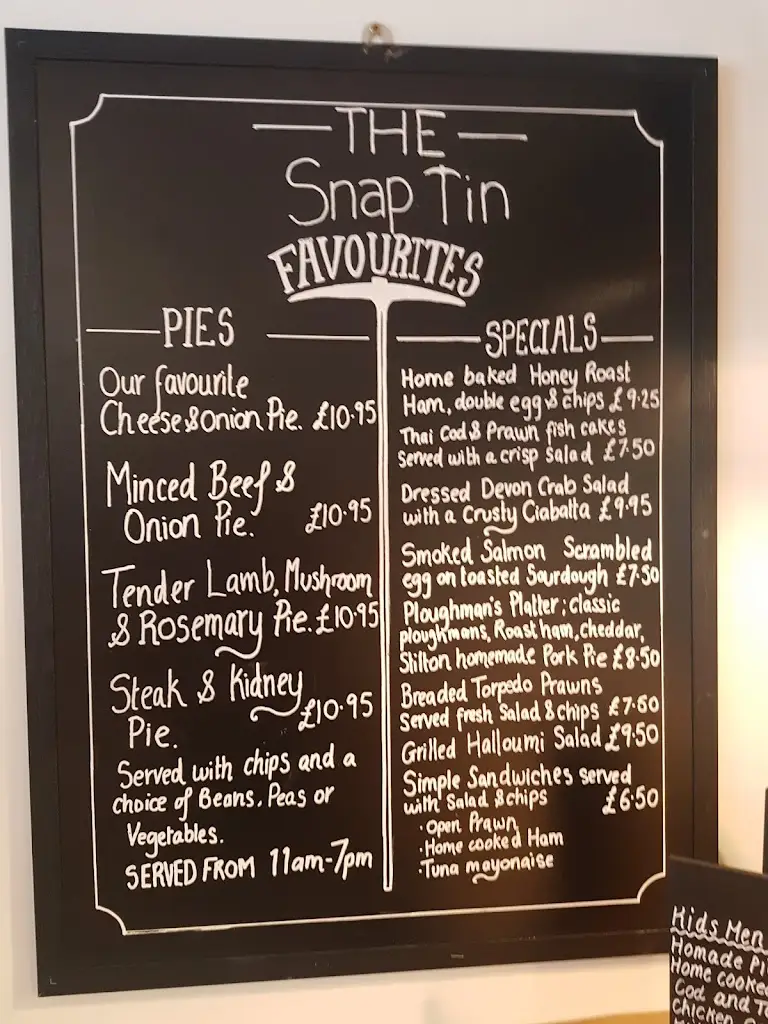 THE
Snap Tin
FAVOURITES
PIES
Our favourite
Cheese & onion Pie. £10.95
Minced Beef &
Onion Pie. £10.95
Tender Lamb, Mushroom
& Rosemary Pie. £10.95
Steak & Kidney
Pie. £10.95
Served with chips and a
choice of Beans, Peas or
Vegetables.
SERVED FROM 11am-7pm
SPECIALS
Home baked Honey Roast
Ham, double egg & chips £9.25
Thai Cod & Prawn fish cakes
served with a crisp salad £7.50
Dressed Devon Crab Salad
with a Crusty Ciabatta £9.95
Smoked Salmon Scrambled
egg on toasted Sourdough £7.50
Ploughman's Platter; classic
ploughmans, Roast ham, cheddar,
Stilton homemade Pork Pie £8.50
Breaded Torpedo Prawns
served fresh Salad & chips £7.60
Grilled Halloumi Salad £9.50
Simple Sandwiches served
with Salad & chips £6.50
• Open Prawn
• Home cooked Ham
• Tuna mayonaise
Kids Men
Homade Pi
Home cooked
Cod and
chicken